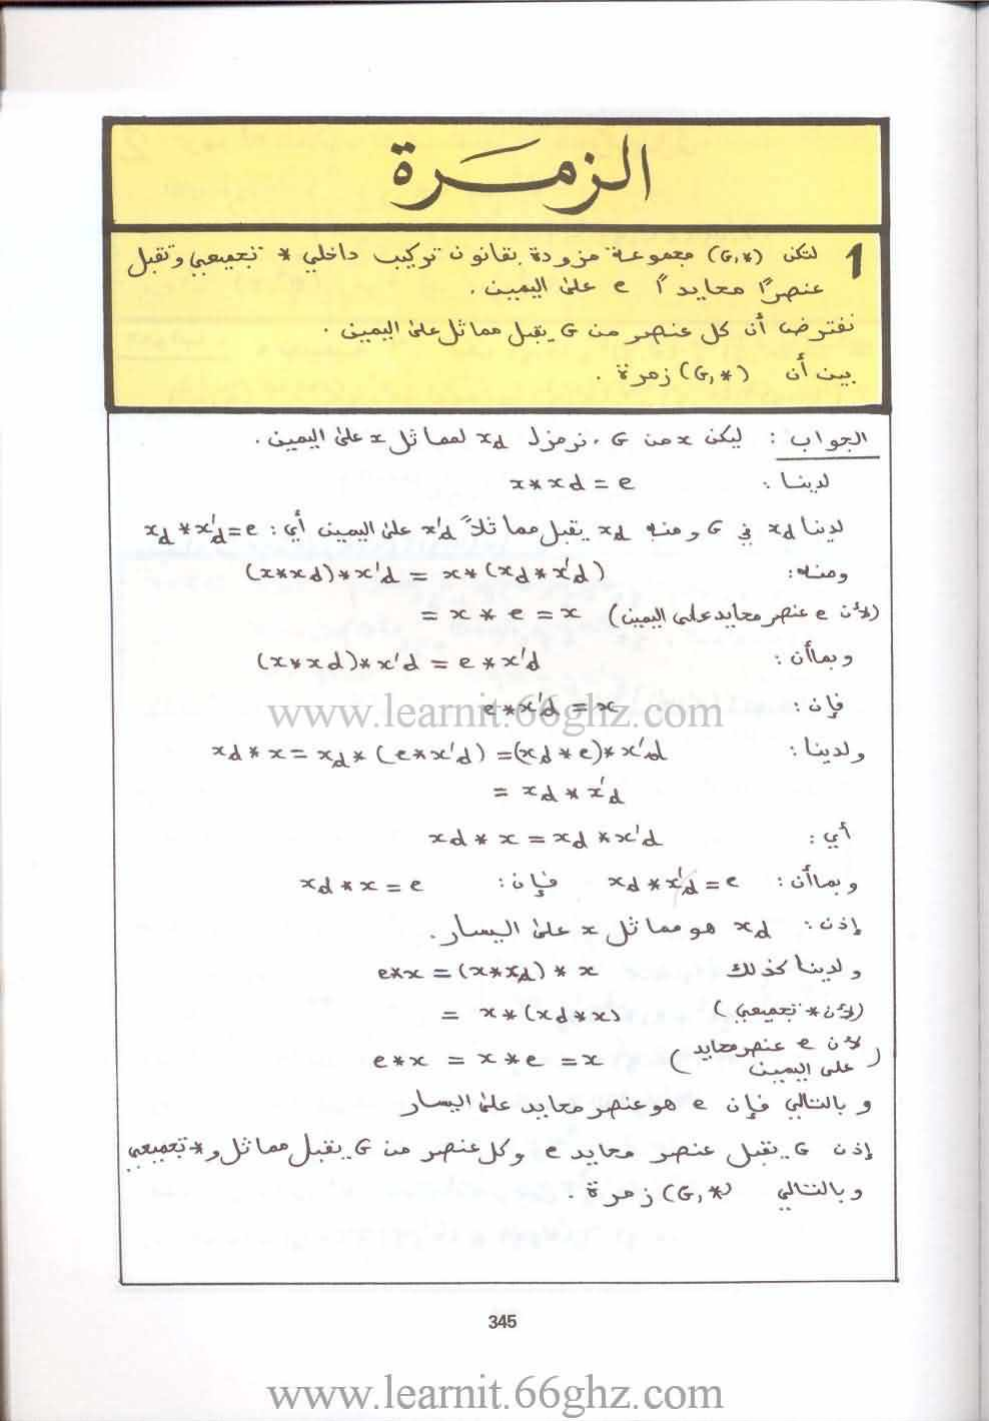 الزمرة
1 لتكن (G,*) مجموعة مزودة بقانون تركيب داخلي * تجميعي وتقبل
عنصرًا محايدًا e على اليمين .
نفترض أن كل عنصر من G يقبل مماثل على اليمين .
بين أن (G,*) زمرة .
الجواب : ليكن x من G . نرمز لـ xd لمماثل x على اليمين .
لدينا : x*xd = e
لدينا xd في G ومنه xd يقبل مماثلاً x'd على اليمين أي : xd*x'd = e
ومنه : (x*xd)*x'd = x*(xd*x'd)
= x*e = x (لأن e عنصر محايد على اليمين)
وبما أن : (x*xd)*x'd = e*x'd
فإن : e*x'd = x
www.learnit.66ghz.com
ولدينا : xd*x = xd*(e*x'd) = (xd*e)*x'd
= xd*x'd
أي : xd*x = xd*x'd
وبما أن : xd*x'd = e فإن : xd*x = e
إذن : xd هو مماثل x على اليسار .
ولدينا كذلك e*x = (x*xd)*x
= x*(xd*x) (لأن * تجميعي)
e*x = x*e = x (لأن e عنصر محايد
على اليمين)
وبالتالي فإن e هو عنصر محايد على اليسار
إذن G يقبل عنصر محايد e وكل عنصر من G يقبل مماثل و * تجميعي
وبالتالي (G,*) زمرة .
345
www.learnit.66ghz.com